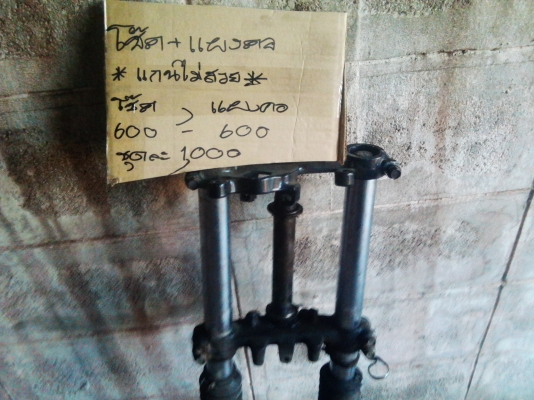 โช๊ค + แผงคอ
* แกนไม่สวย *
โช๊ค , แผงคอ
600 - 600
ชุดละ 1,000